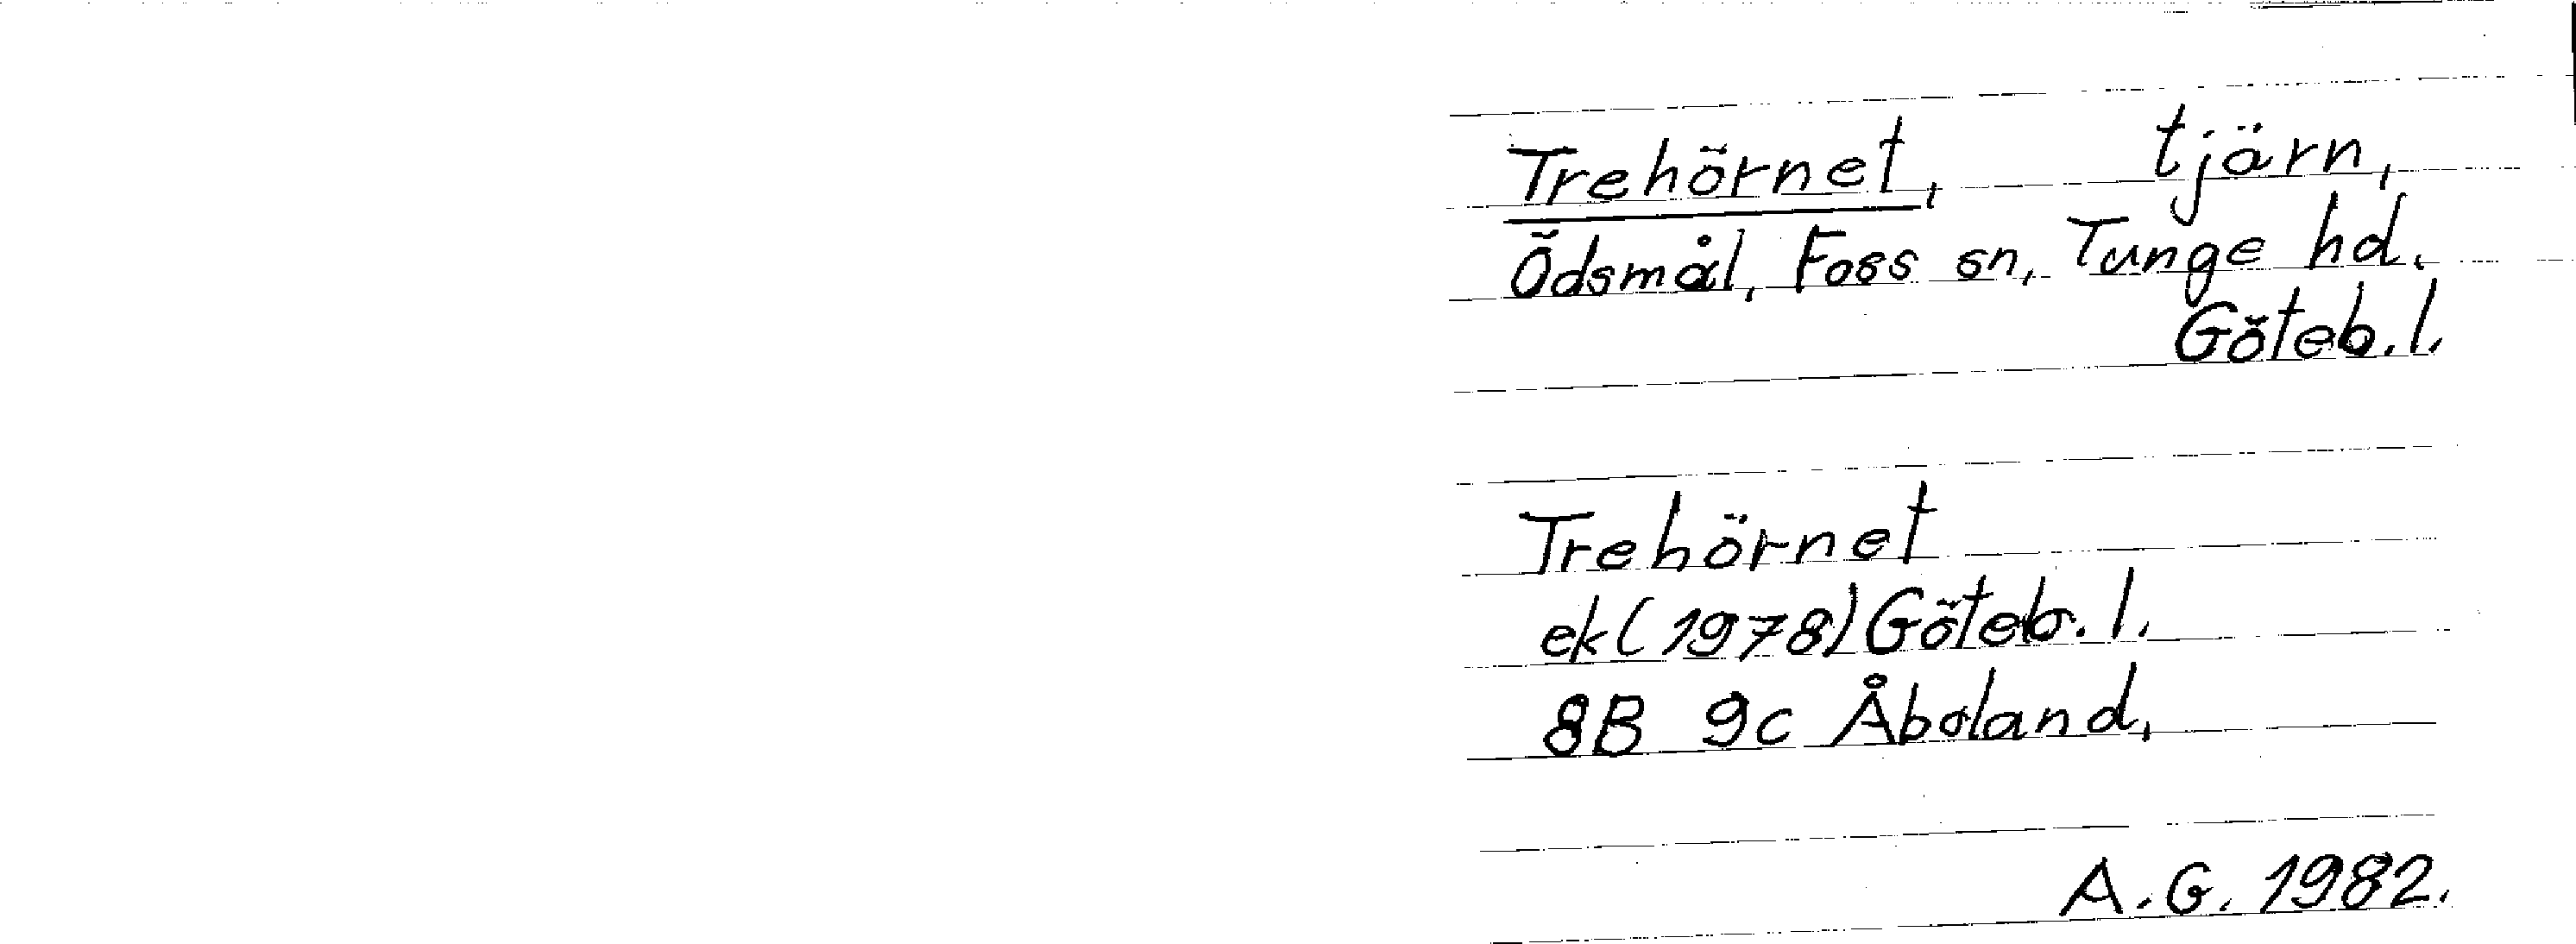 Trehörnet, tjärn,
Ödsmål, Foss sn, Tunge hd.
Göteb. l.
Trehörnet
ek (1978) Göteb. l.
8B 9c Åboland,
A. G. 1982.